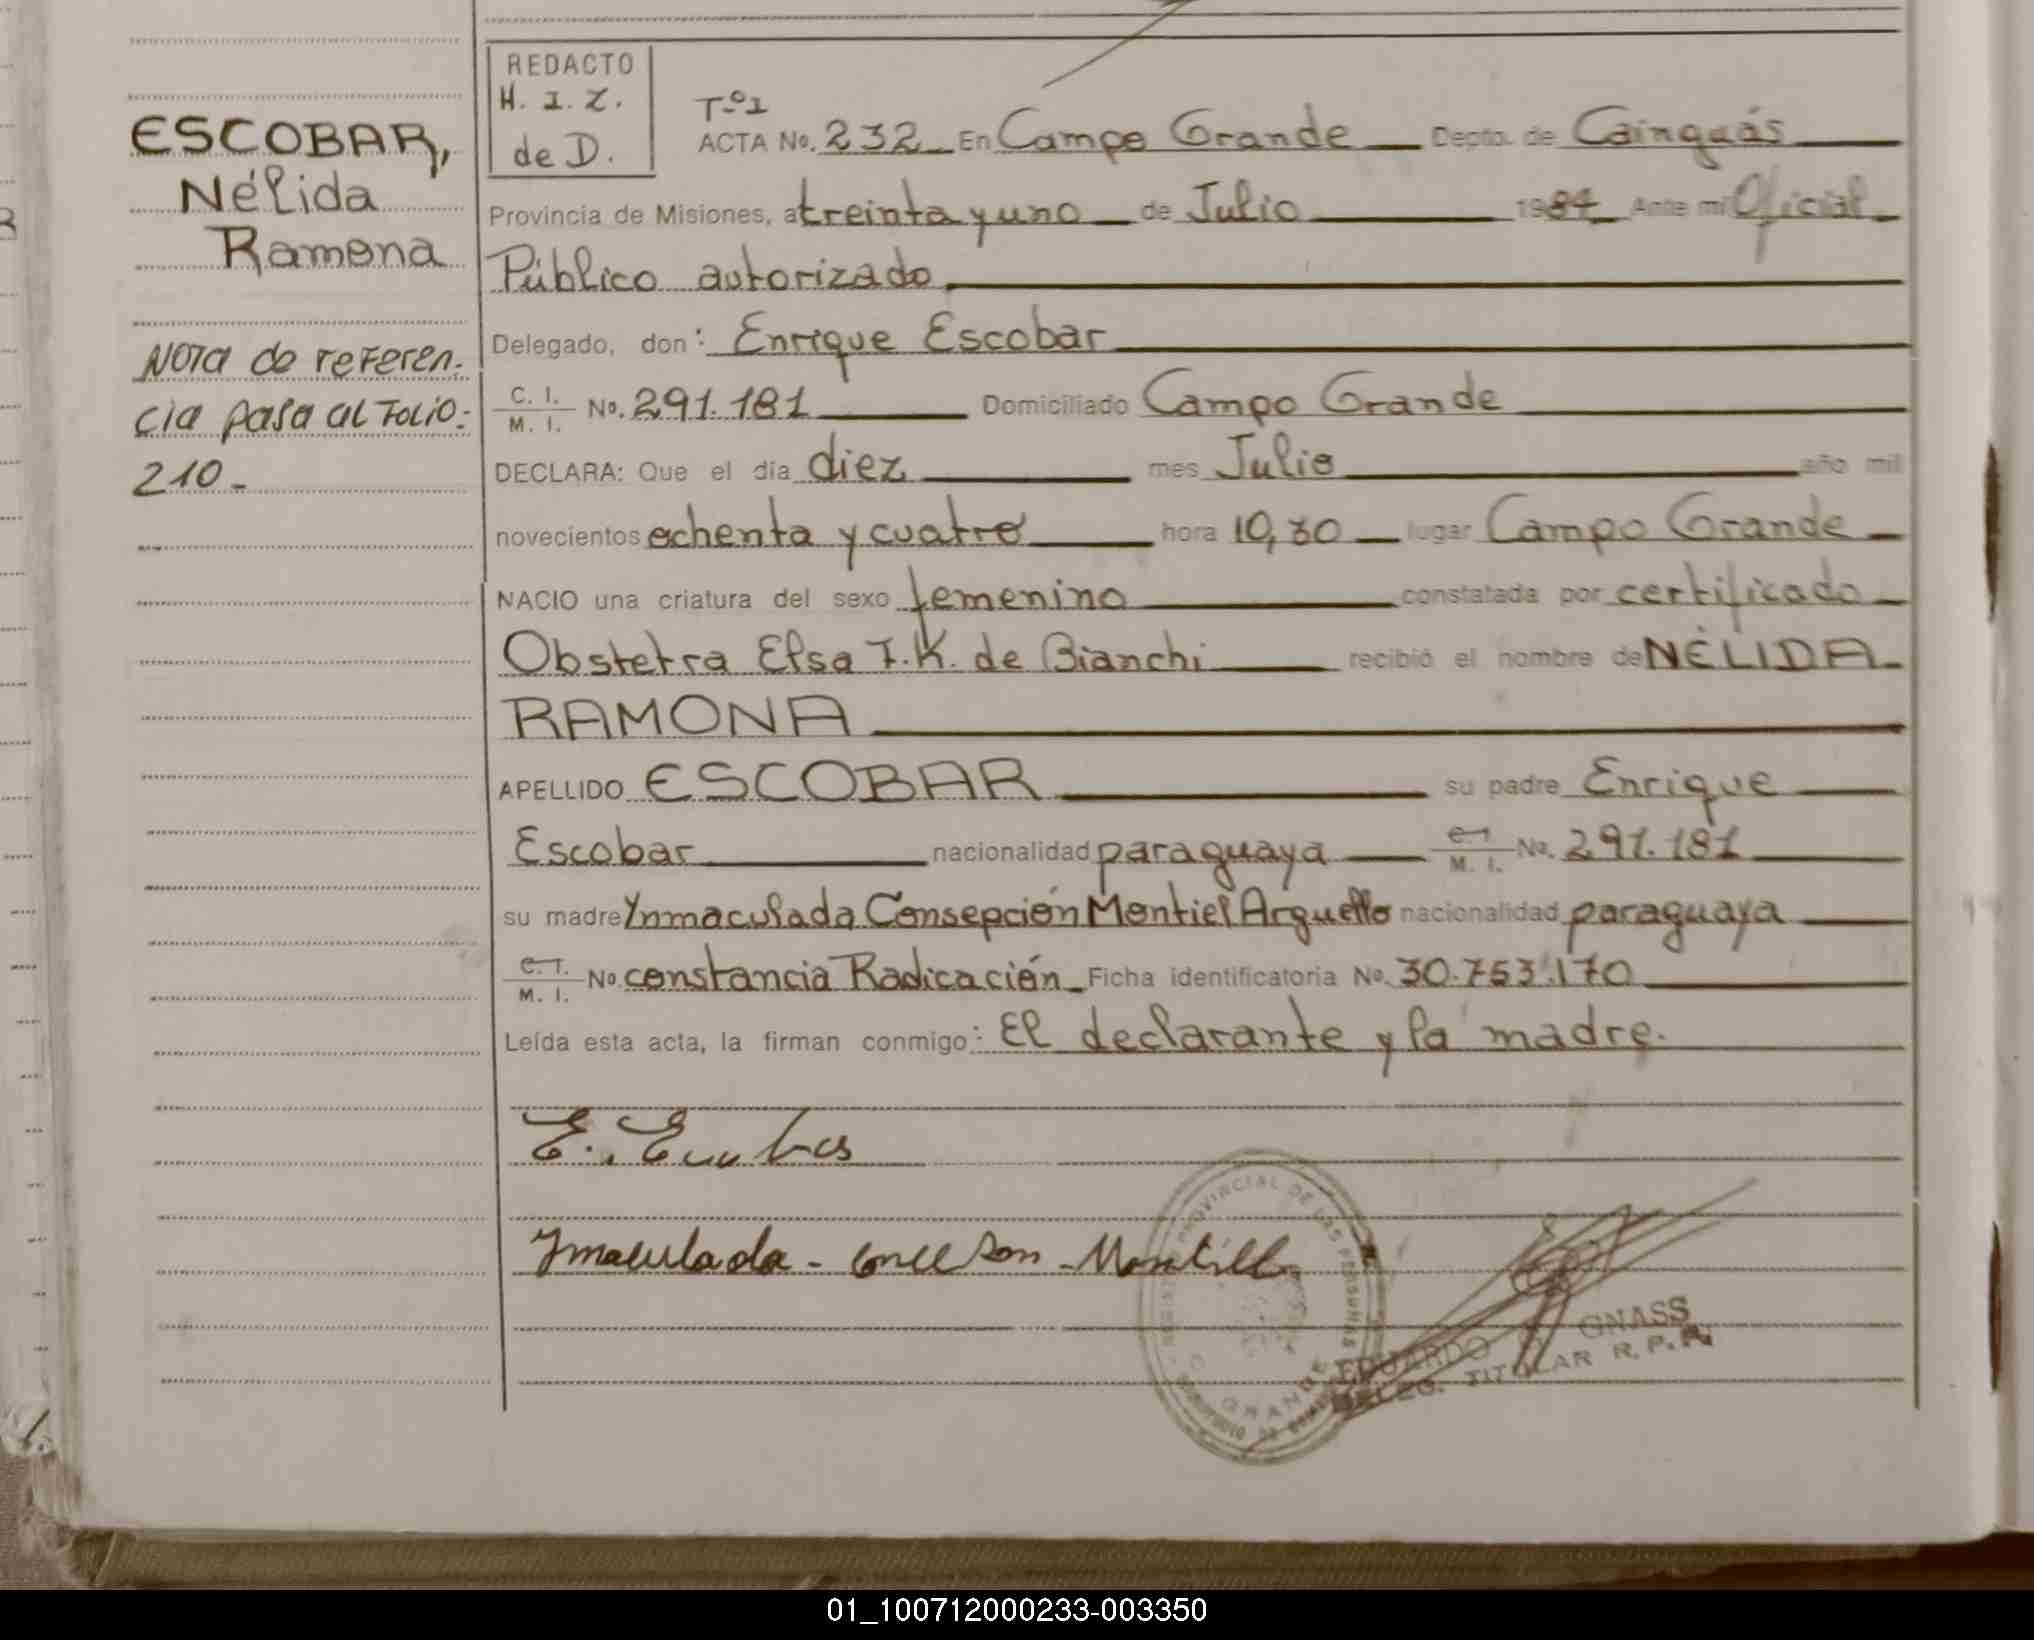 REDACTO
H. I. Z.
de D.
ESCOBAR,
Nélida
Ramona
Nota de referen-
cia pasa al Folio-
210-
Tº1
ACTA No. 232 En Campo Grande Depto. de Cainguás
Provincia de Misiones, a treinta y uno de Julio 1984 Ante mi Oficial
Público autorizado
Delegado, don: Enrique Escobar
C. I. / M. I. No. 291.181 Domiciliado Campo Grande
DECLARA: Que el día diez mes Julio año mil
novecientos ochenta y cuatro hora 10,30 lugar Campo Grande
NACIO una criatura del sexo femenino constatada por certificado
Obstetra Elsa T.K. de Bianchi recibió el nombre de NÉLIDA
RAMONA
APELLIDO ESCOBAR su padre Enrique
Escobar nacionalidad paraguaya C.I. / M. I. No. 291.181
su madre Ynmaculada Consepción Montiel Arguello nacionalidad paraguaya
C.I. / M. I. No. constancia Radicación Ficha identificatoria No. 30.753.170
Leída esta acta, la firman conmigo: El declarante y la madre.
E. Escobar
Ymaculada - - Montiel
PROVINCIAL DE LAS PERSONAS
GRANDE
EDUARDO GNASS
DELEG. TITULAR R.P.P.
01_100712000233-003350